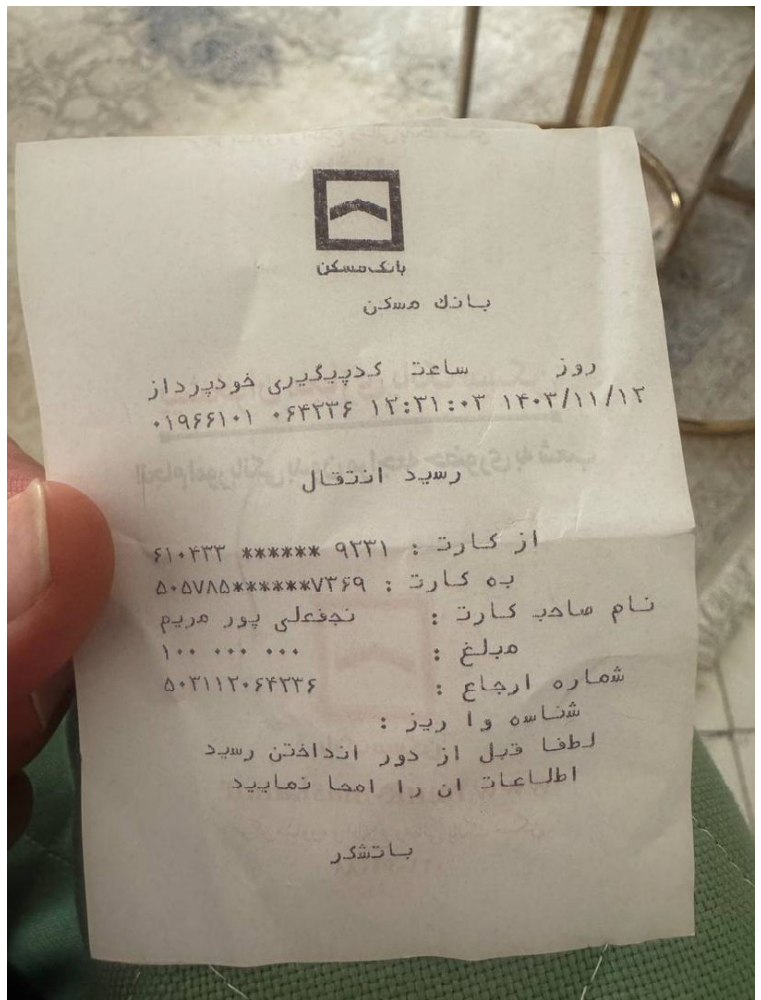 بانک مسکن
بانک مسکن
روز ساعت کدپیگیری خودپرداز
۱۴۰۳/۱۱/۱۲ ۱۲:۳۱:۰۳ ۰۶۴۲۳۶ ۰۱۹۶۶۱۰۱
رسید انتقال
از کارت : ۶۱۰۴۳۳ ****** ۹۲۳۱
به کارت : ۵۰۵۷۸۵******۷۳۶۹
نام صاحب کارت : نجفعلی پور مریم
مبلغ : ۱۰۰ ۰۰۰ ۰۰۰
شماره ارجاع : ۵۰۳۱۱۲۰۶۴۲۳۶
شناسه وا ریز :
لطفا قبل از دور انداختن رسید
اطلاعات ان را امحا نمایید
باتشکر